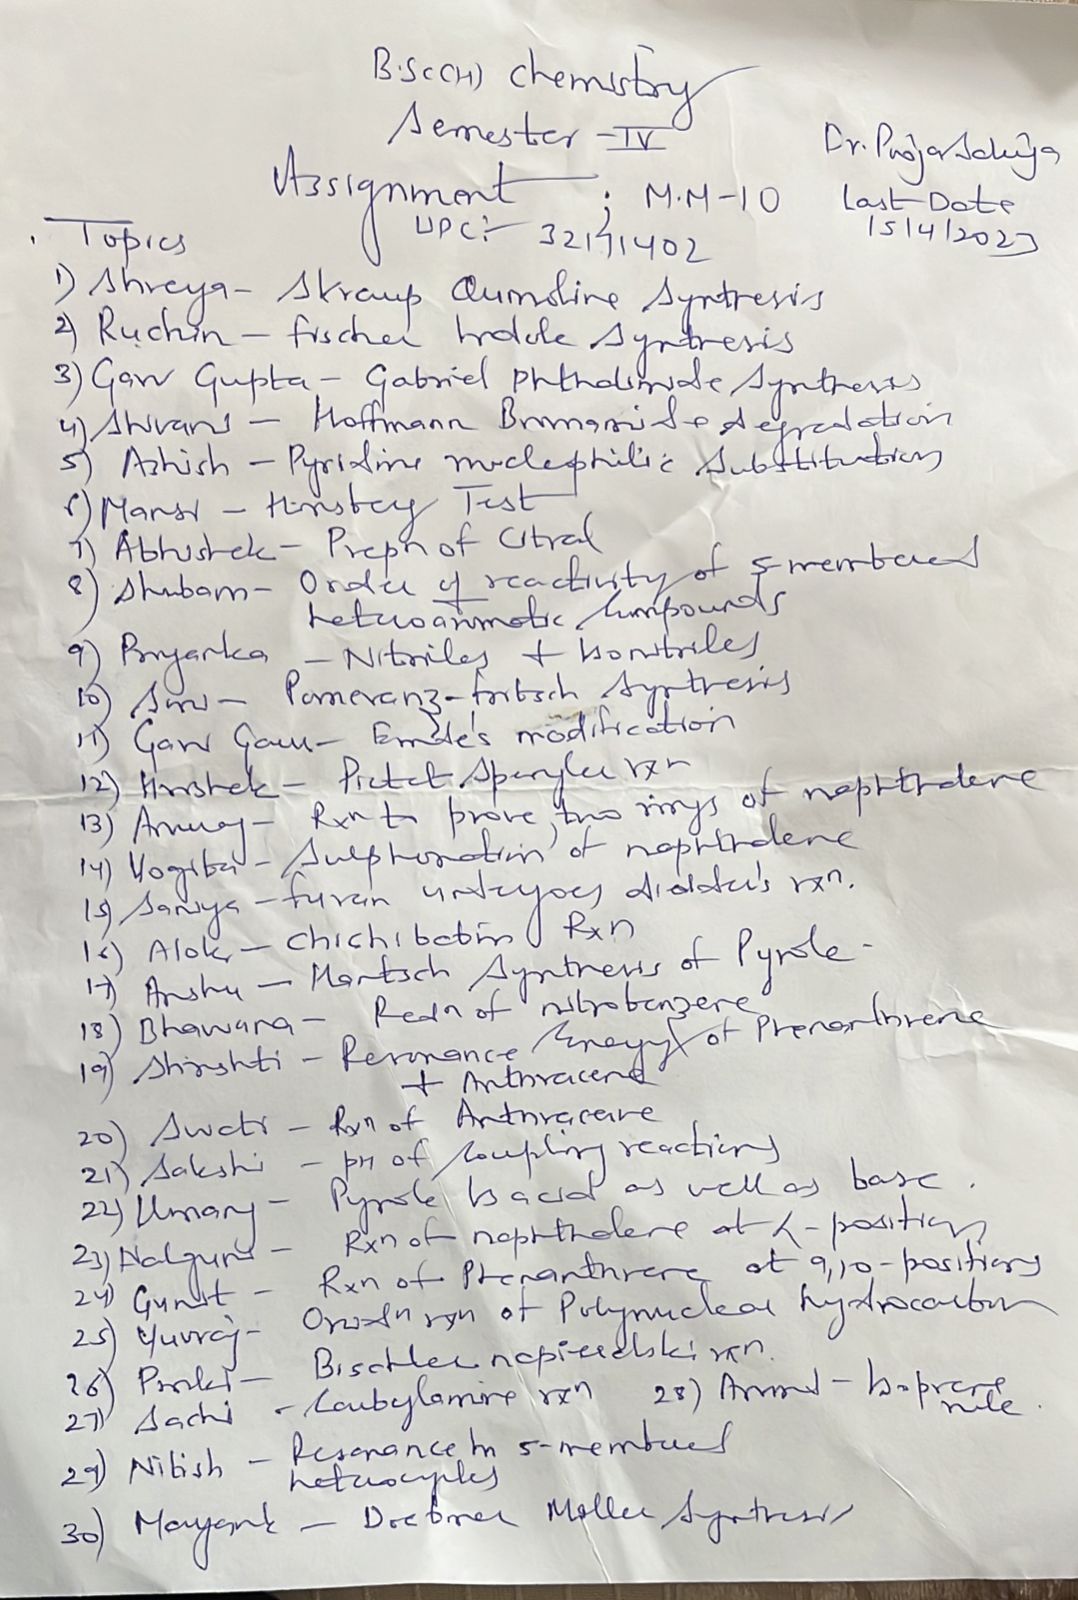 B.Sc(H) Chemistry
Semester - IV
Dr. Pooja
Assignment ; M.M-10
Last Date
15/4/2023
UPC:-
Topics
1) Shreya - Skraup Quinoline Synthesis
2) Ruchin - fischer Indole Synthesis
3) Garv Gupta - Gabriel phthalimide Synthesis
4) - Hoffmann Bromamide degradation
5) Ashish - Pyridine nucleophilic Substitution
6) Mansi - Hinsberg Test
7) Abhishek - Prepn of Citral
8) Shubam - Order of reactivity of 5-membered
heteroaromatic Compounds
9) Priyanka - Nitriles + Isonitriles
10) - Pomeranz-fritsch Synthesis
11) Garv - Emde's modification
12) - Pictet Spengler rxn
13) Anurag - Rxn to prove two rings of naphthalene
14) - Sulphonation of naphthalene
15) Saniya - furan undergoes rxn.
16) Alok - Chichibabin Rxn
17) Anshu - Hantsch Synthesis of Pyrole -
18) Bhawana - Redn of nitrobenzene
19) Shirshti - Resonance Energy of Phenanthrene
+ Anthracene
20) Swati - Rxn of Anthracene
21) Sakshi - pH of Coupling reactions
22) Umang - Pyrole is acid as well as base.
23) - Rxn of naphthalene at α-position
24) - Rxn of Phenanthrene at 9,10-positions
25) Yuvraj - rxn of Polynuclear hydrocarbon
26) Pinki - Bischler rxn.
27) Sachi - Carbylamine rxn
28) - Isoprene
rule.
29) Nitish - Resonance in 5-membered
heterocycles
30) Mayank - Doebner Miller Synthesis